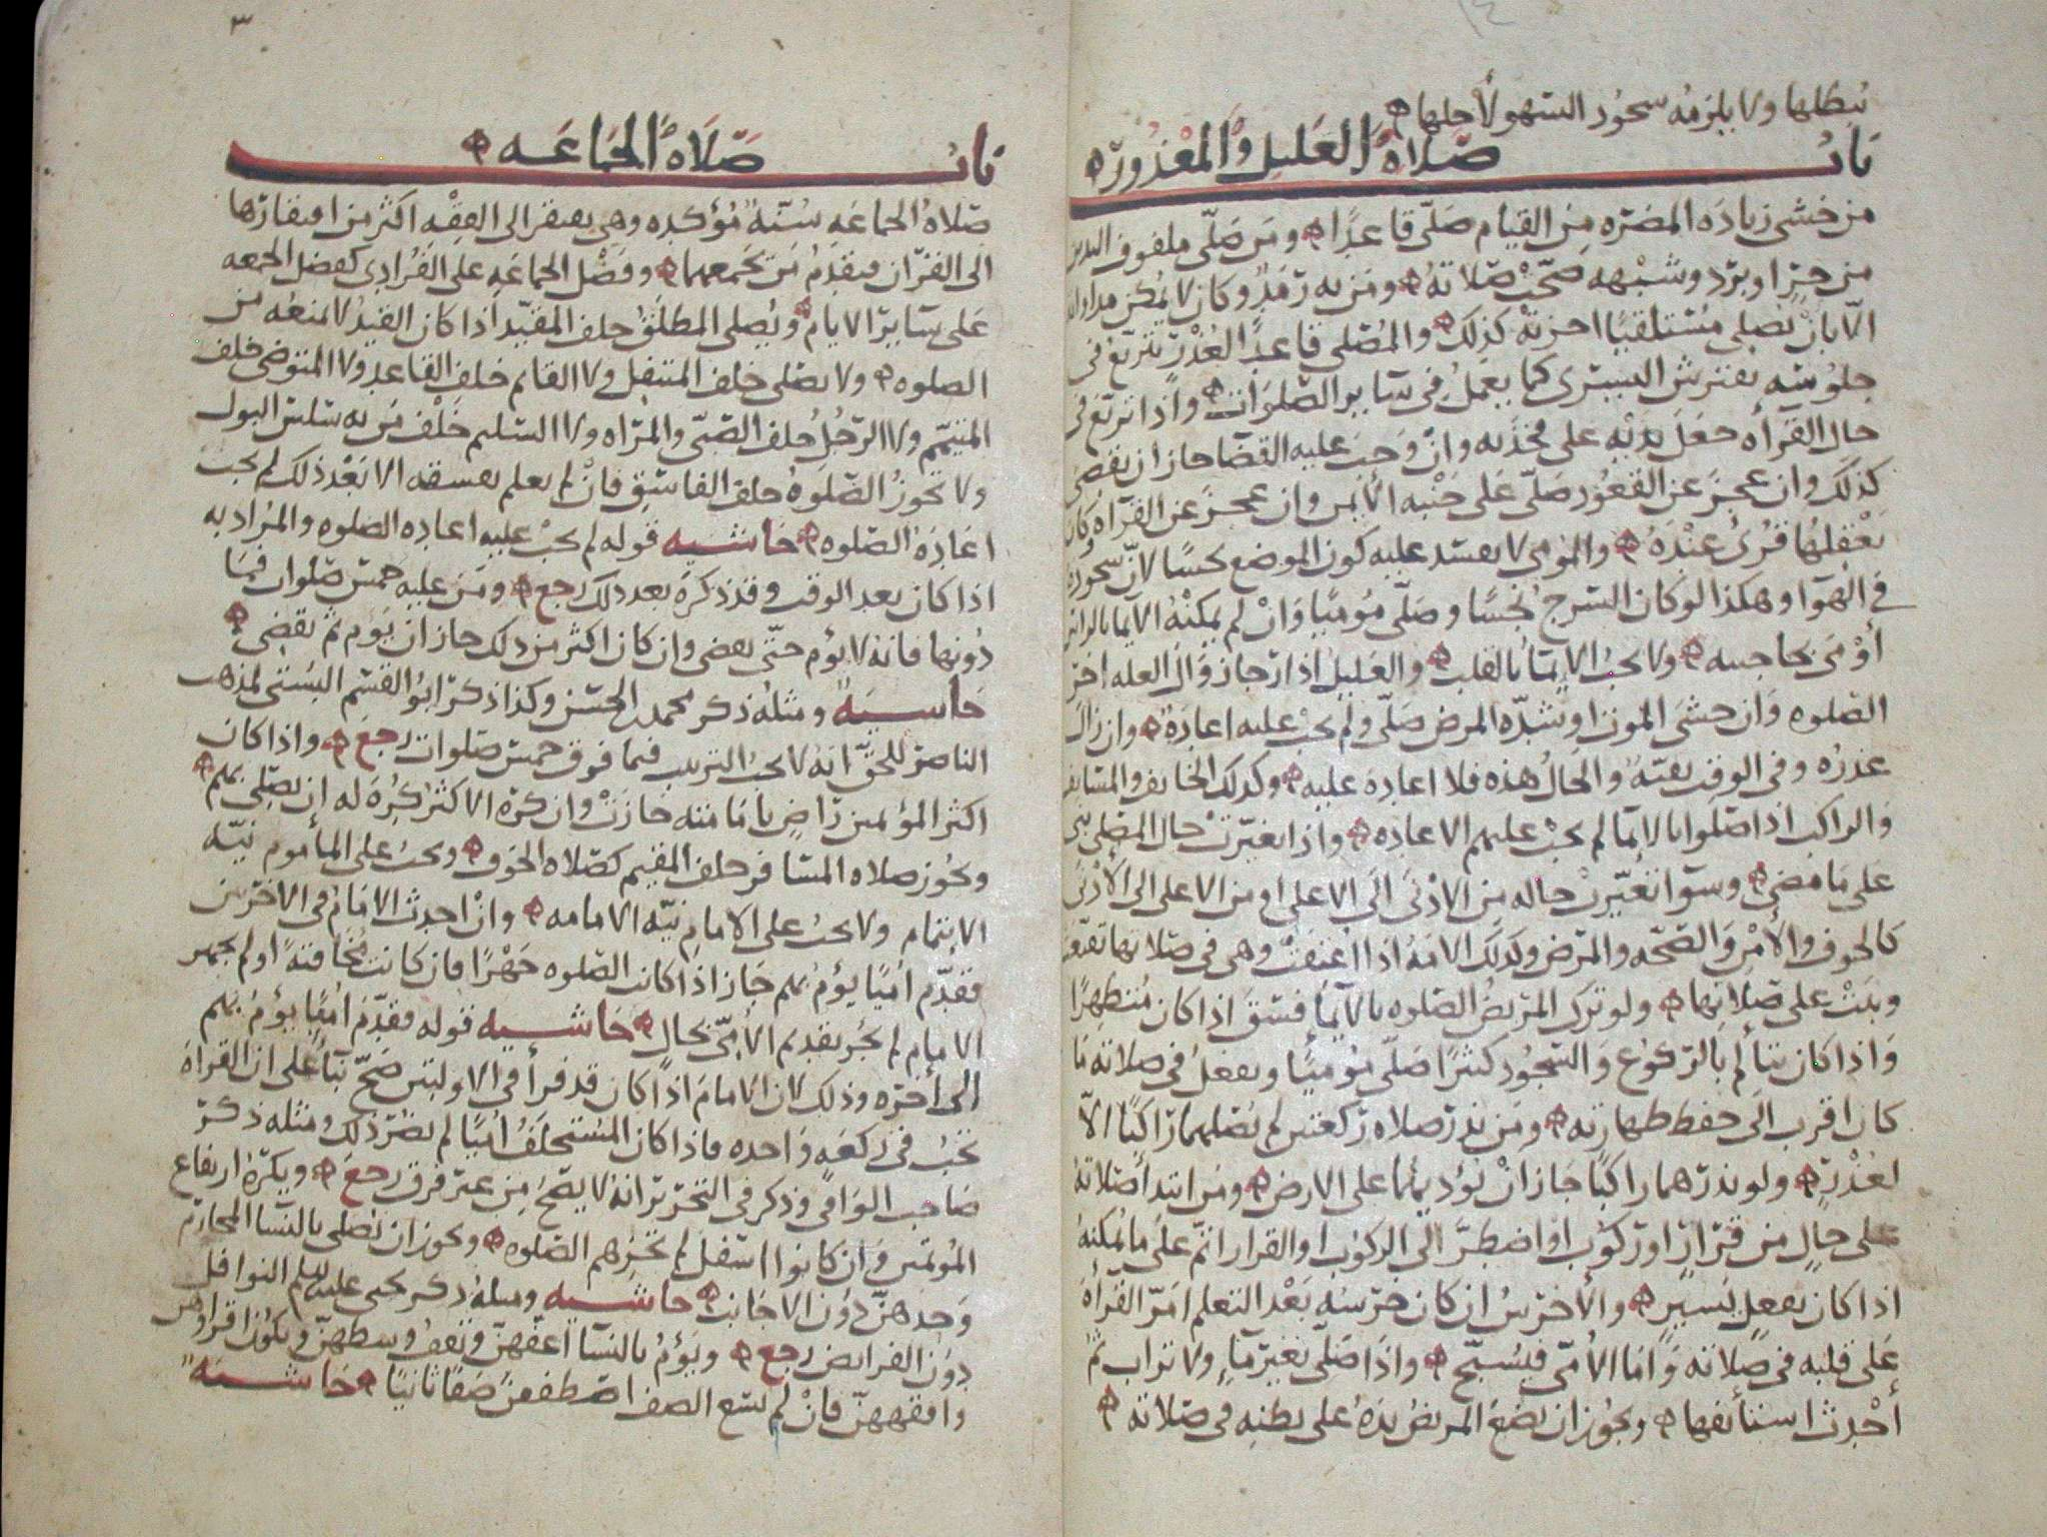 يبطلها ولا يلزمه سجود السهو لاجلها
باب صلاة العليل والمعذور
من خشي زيادة المضره من القيام صلى قاعدًا ومن صلى ملفوف اليدين
من حرٍ او برد وشبهه صحت صلاته ومن به رمدٌ وكان لا يمكن مداواته
الا بان يصلي مستلقيًا اجزته كذلك والمصلي قاعدًا لعذر يتربع في
جلوسه يفترش اليسرى كما يعمل في ساير الصلوات واذا تربع في
حال القراه جعل يديه على فخذيه وان وجب عليه القضا جاز ان يقضي
كذلك وان عجز عن القعود صلى على جنبه الايمن وان عجز عن القراه وكان
يعقلها قرئ عنده والمومي لا يفسد عليه كون الموضع نجسًا لان سجوده
في الهوا وهكذا لو كان السرج نجسًا وصلى موميًا وان لم يمكنه الايما بالراس
أومى بحاجبيه ولا يجب الايما بالقلب والعليل اذا رجا زوال العله اخر
الصلوه وان خشي الموت او شده المرض صلى ولم يجب عليه اعادة وان زال
عذره وفي الوقت بقيّة والحال هذه فلا اعادة عليه وكذلك الخايف والمسايف
والراكب اذا صلوا بالايما لم يجب عليهم الاعاده واذا تغيرت حال المصلي بنى
على ما مضى وسوا تغيرت حاله من الادنى الى الاعلى او من الاعلى الى الأدنى
كالخوف والأمن والصحه والمرض وكذلك الامة اذا اعتقت وهي في صلاتها تقنعت
وبنت على صلاتها ولو ترك المريض الصلوه بالايما فسق اذا كان متطهرًا
واذا كان يتألم بالركوع والسجود كثيرًا صلى موميًا ويفعل في صلاته ما
كان اقرب الى حفظ طهارته ومن نذر صلاه ركعتين لم يصلهما راكبًا الا
لعذر ولو نذرهما راكبًا جاز ان يؤديهما على الارض ومن ابتدأ صلاته
على حالٍ من قرار او ركوب او اضطر الى الركوب او القرار اتم على ما يمكنه
اذا كان بفعل يسير والأخرس ان كان خرسه بعد التعلم امر القرأة
على قلبه في صلاته واما الأمي فيسبح واذا صلى بغير ماءٍ ولا تراب ثم
أحدث استأنفها ويجوز ان يضع المريض يده على بطنه في صلاته
٣
باب صلاة الجماعه
صلاة الجماعه سُنّة مؤكده وهي يفتقر الى الفقه اكثر من افتقارها
الى القرآن فيقدم من يجمعهما وفضل الجماعه على الفُرادى كفضل الجمعه
على ساير الايام ويصلي المطلق خلف المقيد اذا كان القيد لا يمنعه من
الصلوه ولا يصلى خلف المتنفل ولا القائم خلف القاعد ولا المتوضي خلف
المتيمم ولا الرجل خلف الصبي والمراه ولا السليم خلف من به سلس البول
ولا تجوز الصلوة خلف الفاسق فان لم يعلم بفسقه الا بعد ذلك لم يجب
اعادة الصلوه حاشيه قوله لم يجب عليه اعاده الصلوه والمراد به
اذا كان بعد الوقت وقد ذكره بعد ذلك رجع ومن عليه خمس صلوات فما
دونها فانه لا يؤم حتى يقضي وان كان اكثر من ذلك جاز ان يؤم ثم يقضي
حاشية ومثله ذكر محمد بن الحسن وكذا ذكر ابو القسم البستي لمذهب
الناصر للحق انه لا يجب الترتيب فيما فوق خمس صلوات رجع واذا كان
اكثر المؤتمين راضٍ بامامته جازت وان كره الاكثر كُره له ان يصلي بهم
ويجوز صلاه المسافر خلف المقيم كصلاه الخوف ويجب على المأموم نيّة
الايتمام ولا يجب على الامام نيّه الامامه وان احدث الامام في الاخرتين
فقدّم اميًا يؤم بهم جاز اذا كانت الصلوه جهرًا فان كانت مخافتةً او لم يجهر
الامام لم يجز تقديم الأمي بحال حاشيه قوله فقدم اميًا يؤم بهم
الى اخره وذلك لان الامام اذا كان قد قرأ في الاوليتين صح بناءً على ان القراه
تجب في ركعةٍ واحده فاذا كان المستخلف اميًا لم يضر ذلك ومثله ذكر
صاحب الوافي وذكر في التحرير انه لا يصح من غير فرق رجع ويكره ارتفاع
المؤتمين وان كانوا اسفل لم تجزهم الصلوه ويجوز ان يُصلى بالنسا المحارم
وحدهن دون الاجانب حاشيه ومثله ذكر يحيى عليلم النوافل
دون الفرايض رجع ويؤم بالنسآ اعقهن وتقف وسطهن ويكون اقراهن
وافقههن فان لم يسع الصف اصطففن صفًا ثانيًا حاشيه